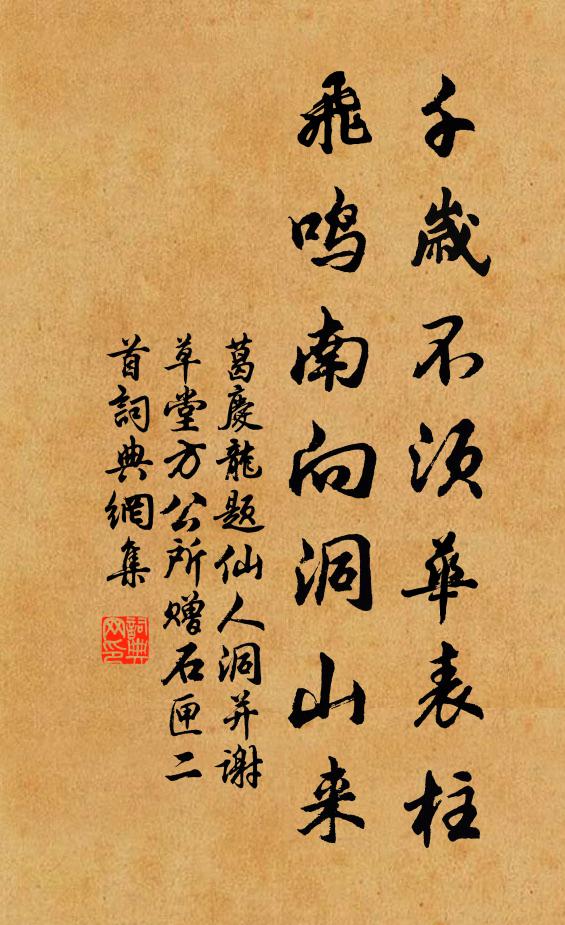 千歲不須華表柱
飛鳴南向洞山来
葛慶龍題仙人洞并謝
草堂方公所贈石匣二
首詞典網集
詞典網印